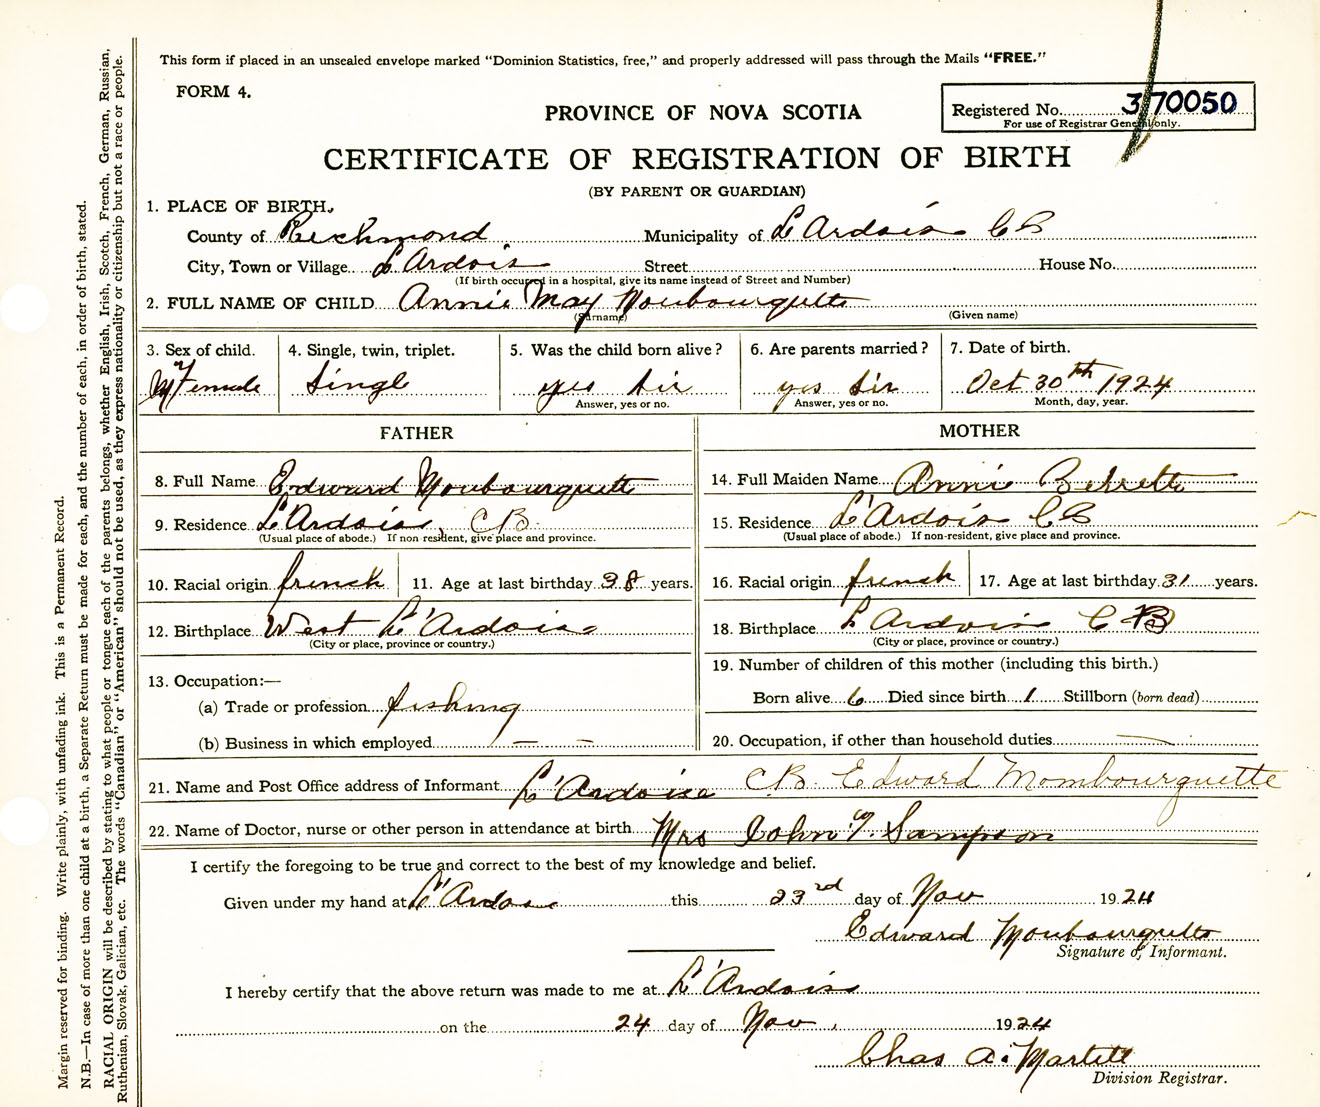 This form if placed in an unsealed envelope marked "Dominion Statistics, free," and properly addressed will pass through the Mails "FREE."
FORM 4.
PROVINCE OF NOVA SCOTIA
Registered No. 370050
For use of Registrar General only.
CERTIFICATE OF REGISTRATION OF BIRTH
(BY PARENT OR GUARDIAN)
1. PLACE OF BIRTH.
County of Richmond Municipality of L'Ardois CB
City, Town or Village L'Ardois Street House No.
(If birth occurred in a hospital, give its name instead of Street and Number)
2. FULL NAME OF CHILD Annie May Moubourquette
(Surname) (Given name)
3. Sex of child. 4. Single, twin, triplet. 5. Was the child born alive? 6. Are parents married? 7. Date of birth.
Female Single yes sir yes sir Oct 30th 1924
Answer, yes or no. Answer, yes or no. Month, day, year.
FATHER MOTHER
8. Full Name Edward Moubourquette 14. Full Maiden Name Annie
9. Residence L'Ardois, CB 15. Residence L'Ardois CB
(Usual place of abode.) If non-resident, give place and province. (Usual place of abode.) If non-resident, give place and province.
10. Racial origin french 11. Age at last birthday 38 years. 16. Racial origin french 17. Age at last birthday 31 years.
12. Birthplace West L'Ardois 18. Birthplace L'Ardois CB
(City or place, province or country.) (City or place, province or country.)
19. Number of children of this mother (including this birth.)
13. Occupation:—
(a) Trade or profession fishing Born alive 6 Died since birth 1 Stillborn (born dead)
(b) Business in which employed — — 20. Occupation, if other than household duties —
21. Name and Post Office address of Informant L'Ardoise CB. Edward Mombourquette
22. Name of Doctor, nurse or other person in attendance at birth Mrs John Sampson
I certify the foregoing to be true and correct to the best of my knowledge and belief.
Given under my hand at L'Ardois this 23rd day of Nov 1924
Edward Moubourquette
Signature of Informant.
I hereby certify that the above return was made to me at L'Ardois
on the 24 day of Nov. 1924
Chas A. Martell
Division Registrar.
Margin reserved for binding. Write plainly, with unfading ink. This is a Permanent Record.
N.B.—In case of more than one child at a birth, a Separate Return must be made for each, and the number of each, in order of birth, stated.
RACIAL ORIGIN will be described by stating to what people or tongue each of the parents belongs, whether English, Irish, Scotch, French, German, Russian,
Ruthenian, Slovak, Galician, etc. The words "Canadian" or "American" should not be used, as they express nationality or citizenship but not a race or people.